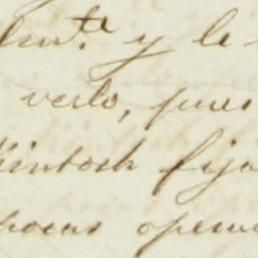 y le
verlo, pues
Kintosh fija
pocas opera